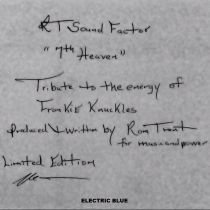 RT Sound Factor
"7th Heaven"
Tribute to the energy of
Frankie Knuckles
Produced & written by Ron Trent
for musicandpower
Limited Edition
ELECTRIC BLUE